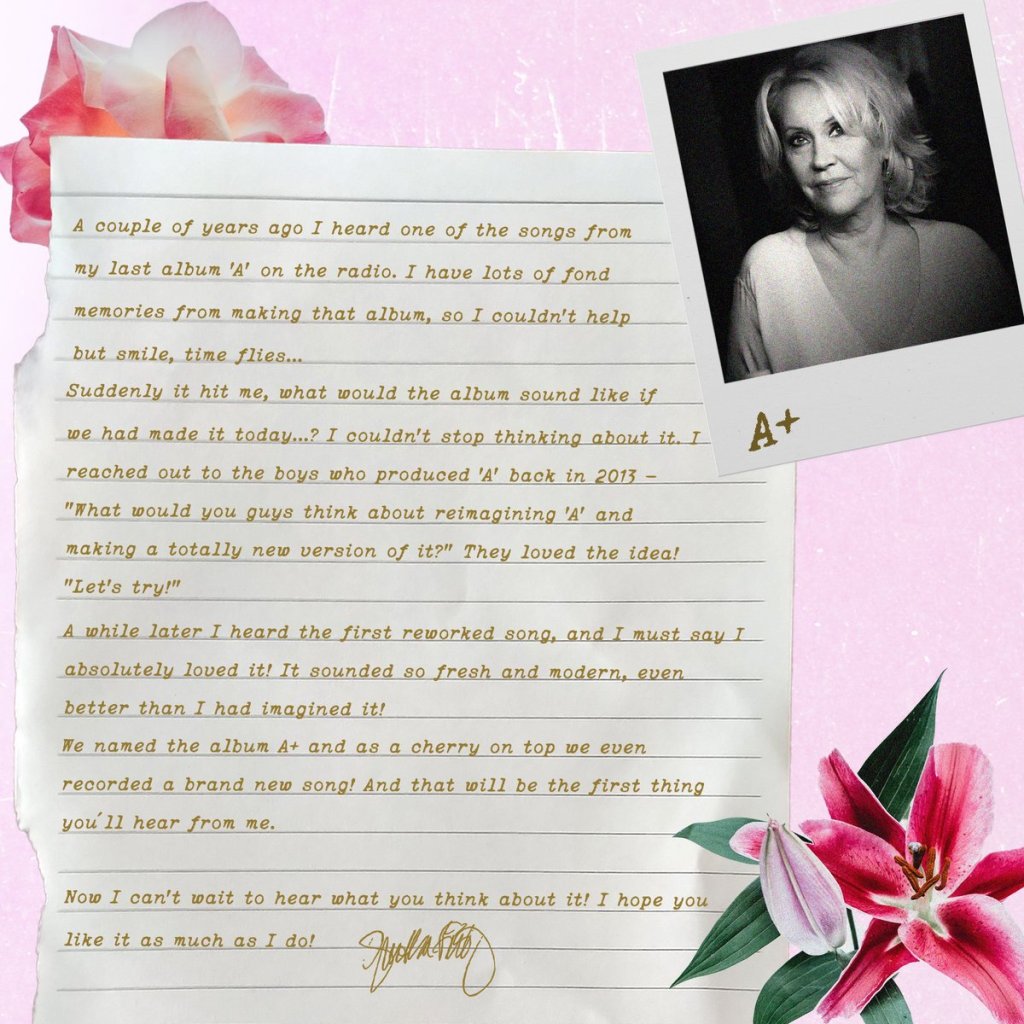 A couple of years ago I heard one of the songs from
my last album 'A' on the radio. I have lots of fond
memories from making that album, so I couldn't help
but smile, time flies...
Suddenly it hit me, what would the album sound like if
we had made it today...? I couldn't stop thinking about it. I
reached out to the boys who produced 'A' back in 2013 –
"What would you guys think about reimagining 'A' and
making a totally new version of it?" They loved the idea!
"Let's try!"
A while later I heard the first reworked song, and I must say I
absolutely loved it! It sounded so fresh and modern, even
better than I had imagined it!
We named the album A+ and as a cherry on top we even
recorded a brand new song! And that will be the first thing
you´ll hear from me.
Now I can't wait to hear what you think about it! I hope you
like it as much as I do!
A+